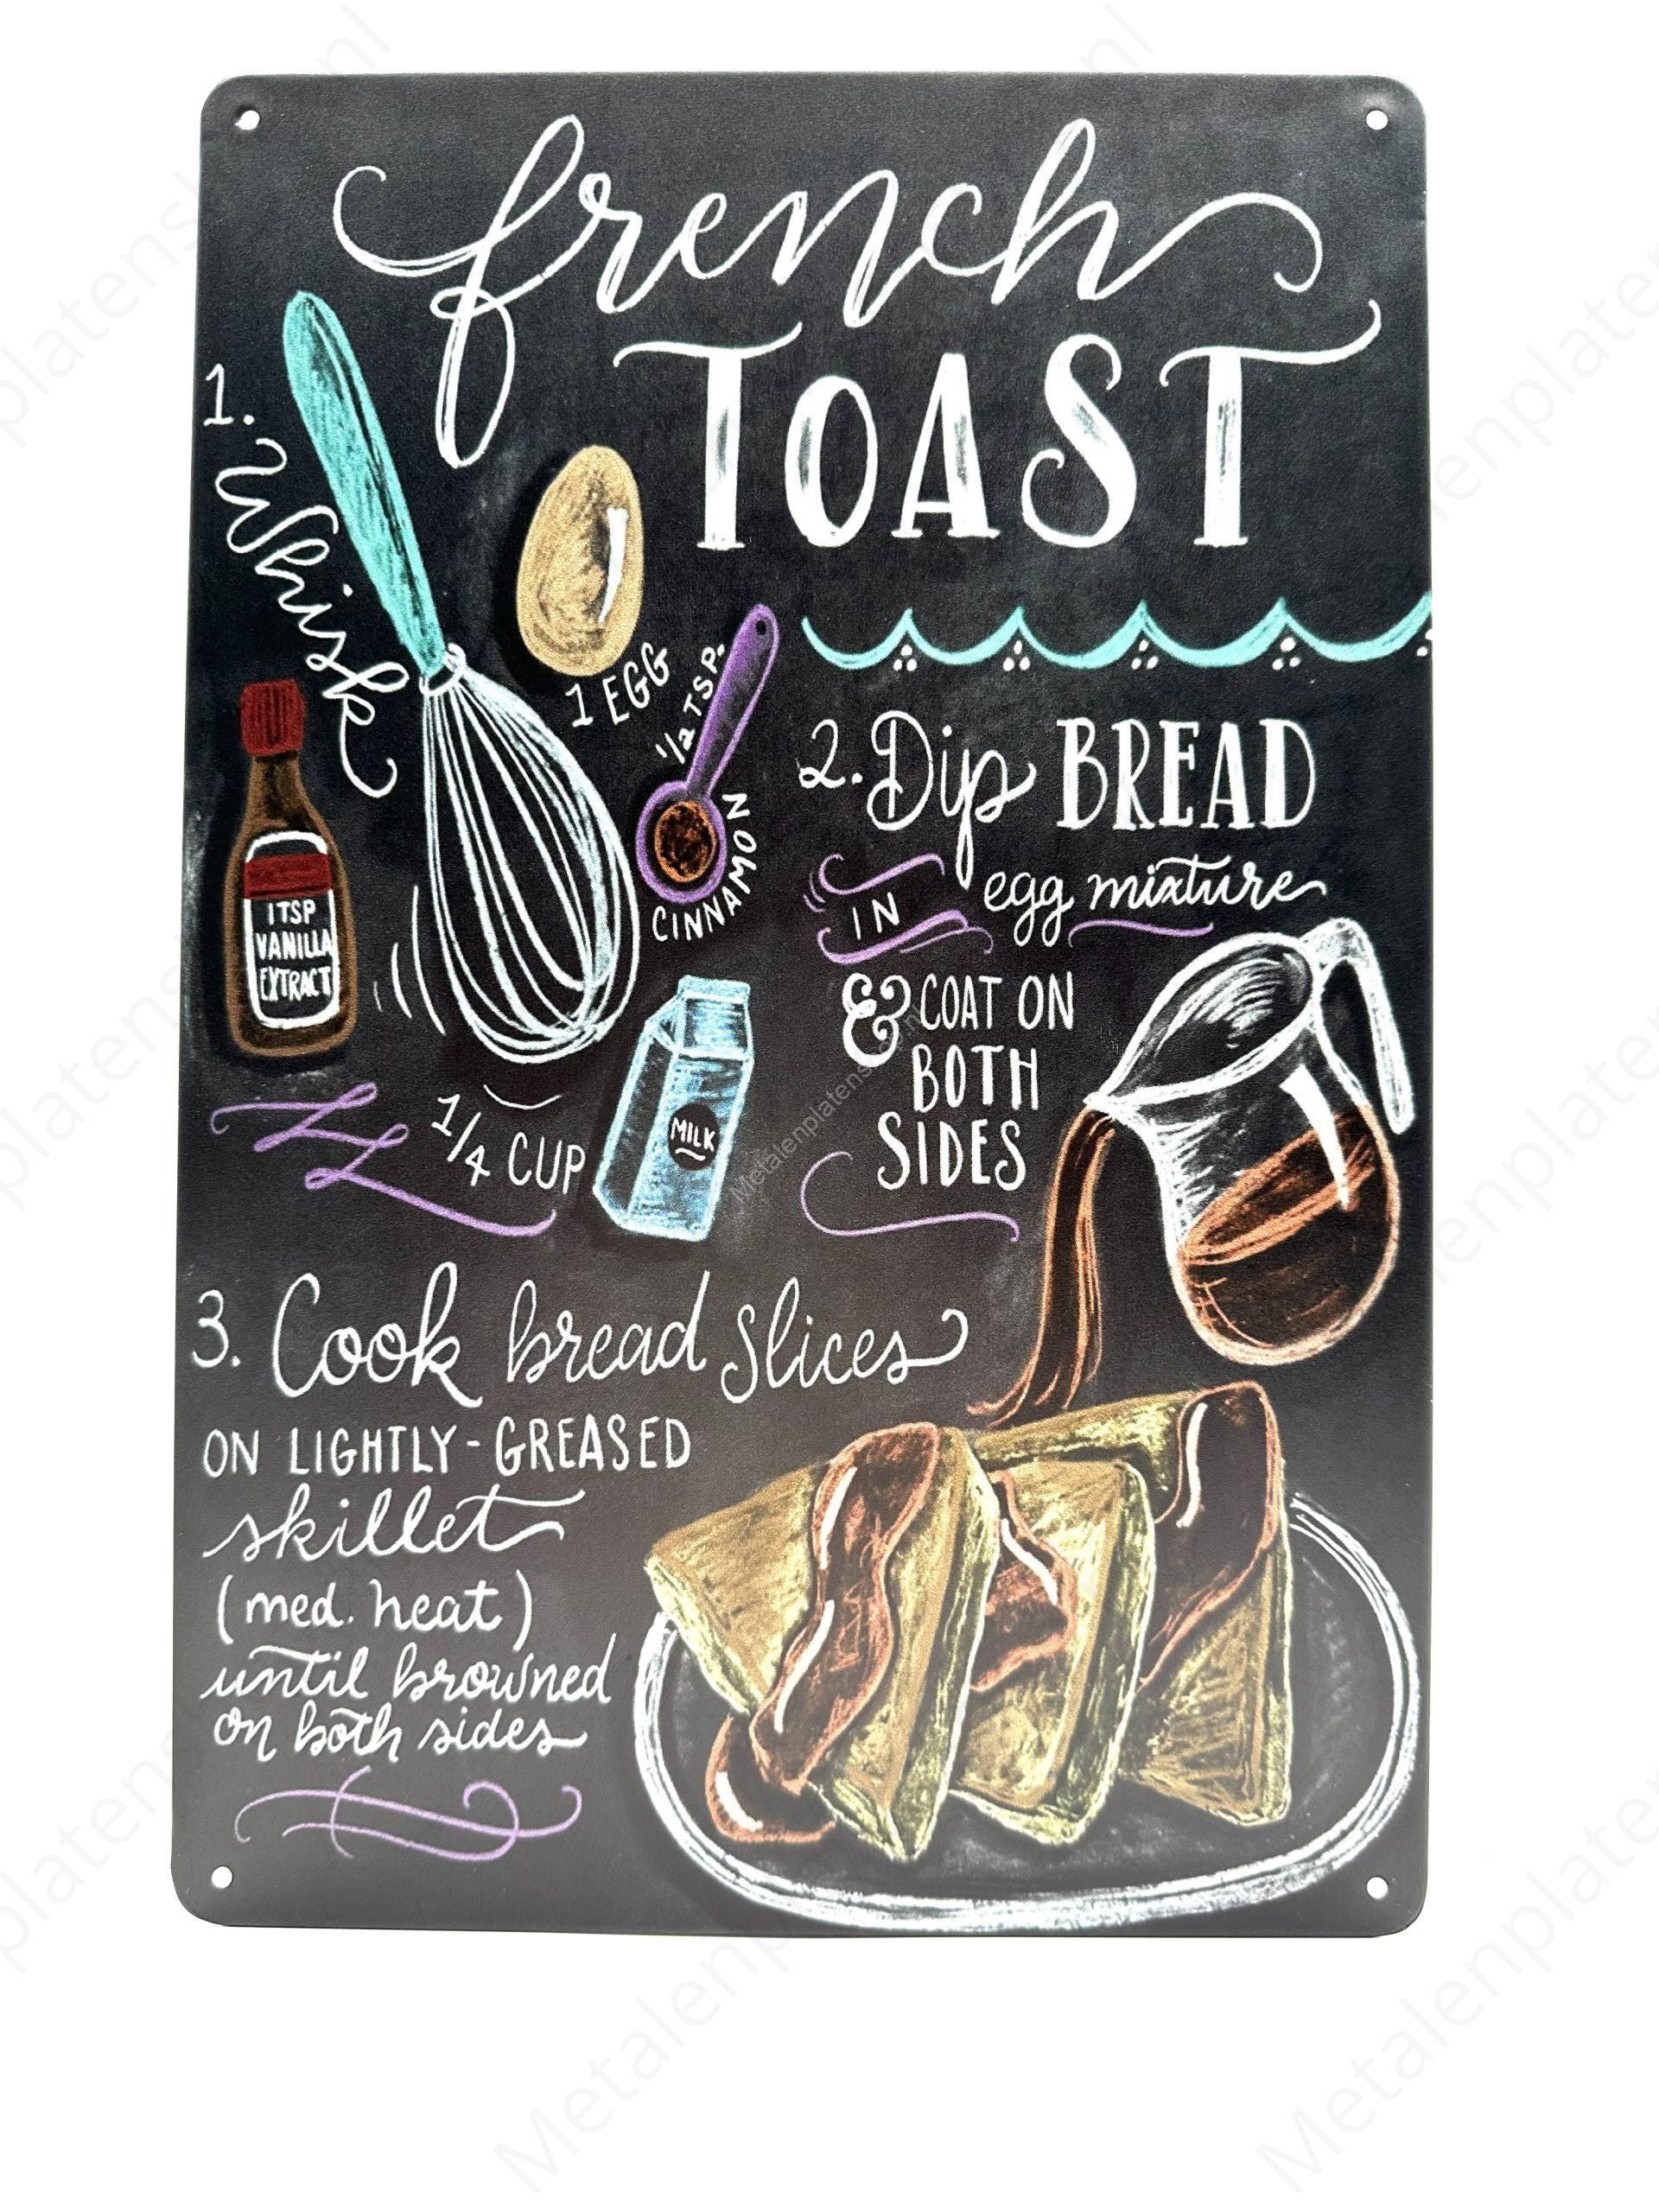 french
TOAST
1.
Whisk
1 EGG
1/2 TSP.
CINNAMON
1TSP
VANILLA
EXTRACT
1/4 CUP
MILK
2. Dip BREAD
IN egg mixture
& COAT ON
BOTH
SIDES
3. Cook bread slices
ON LIGHTLY-GREASED
skillet
(med. heat)
until browned
on both sides
Metalenplatenshop.nl